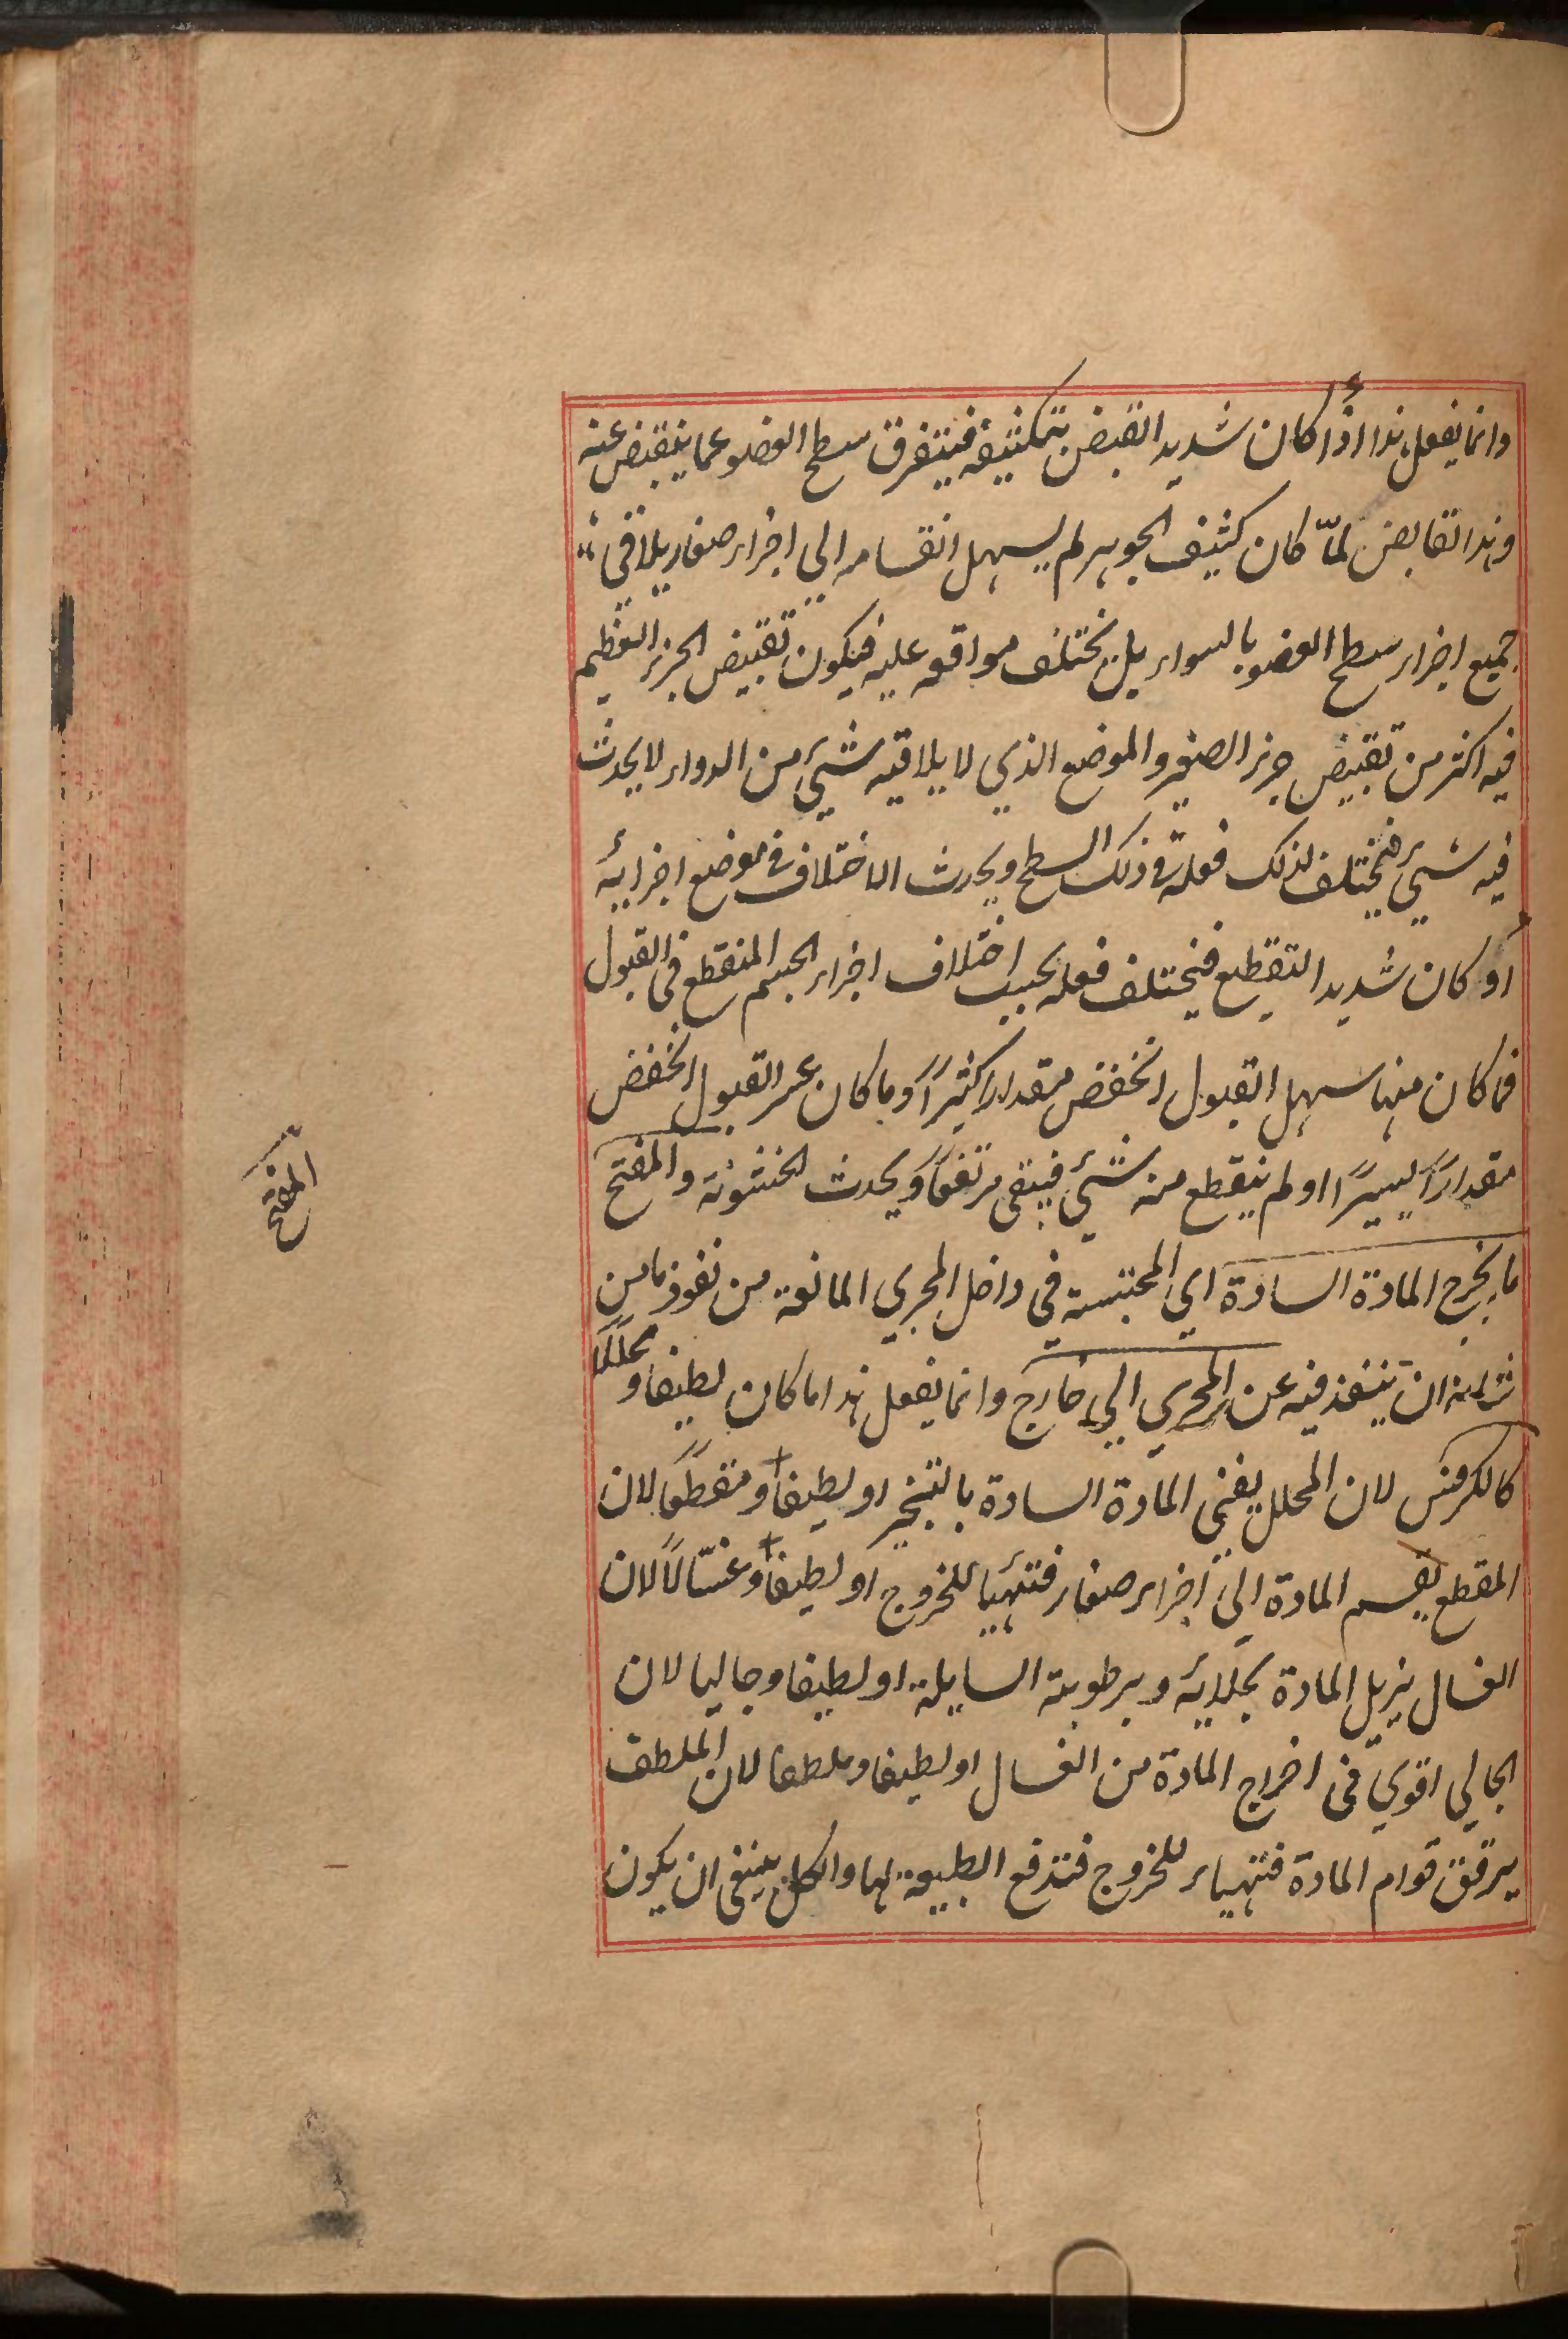 وانما يفعل هذا اذا كان شديد القبض بتكثيفه فيتفرق سطح العضو عما ينقبض عنه
وهذا القابض لمّا كان كثيف الجوهر لم يسهل انقسامه الي اجزاء صغار يلاقي
جميع اجزاء سطح العضو بالسواء بل يختلف مواقعه عليه فيكون تقبيض الجزء العظيم
فيه اكثر من تقبيض جزء الصغير والموضع الذي لا يلاقيه شيئ من الدواء لا يحدث
فيه شيئ فيختلف لذلك فعله في ذلك السطح ويحدث الاختلاف في موضع اجزائه
او كان شديد التقطيع فيختلف فعله بحسب اختلاف اجزاء الجسم المنقطع في القبول
فما كان منها سهل القبول انخفض مقدارًا كثيرًا وما كان عسر القبول انخفض
مقدارًا يسيرًا او لم ينقطع منه شيئ فيبقى مرتفعًا ويحدث الخشونة والمفتح
ما يخرج المادة السادة اي المحتبسة في داخل المجري المانعة من نفوذ ما من
شانه ان ينفذ فيه عن المجري الي خارج وانما يفعل هذا ما كان لطيفا ومحللًا
كالكرفس لان المحلل يفني المادة السادة بالتبخير او لطيفًا ومقطعًا لان
المقطع يقسم المادة الي اجزاء صغار فتتهيأ للخروج او لطيفًا وغسّالًا لان
الغسال يزيل المادة بجلائه وبرطوبته السايلة او لطيفا وجاليا لان
الجالي اقوي في اخراج المادة من الغسال او لطيفا وملطفا لان الملطف
يرقق قوام المادة فتتهياء للخروج فتدفع الطبيعة لها والكل ينبغي ان يكون
المفتح